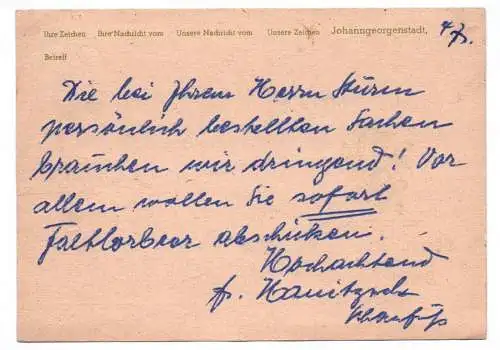 Ihre Zeichen Ihre Nachricht vom Unsere Nachricht vom Unsere Zeichen Johanngeorgenstadt,
Betreff
Die bei Ihrem Herrn Sturm
persönlich bestellten Sachen
brauchen wir dringend! Vor
allem wollen Sie sofort
Faltlorbeer abschicken.
Hochachtend